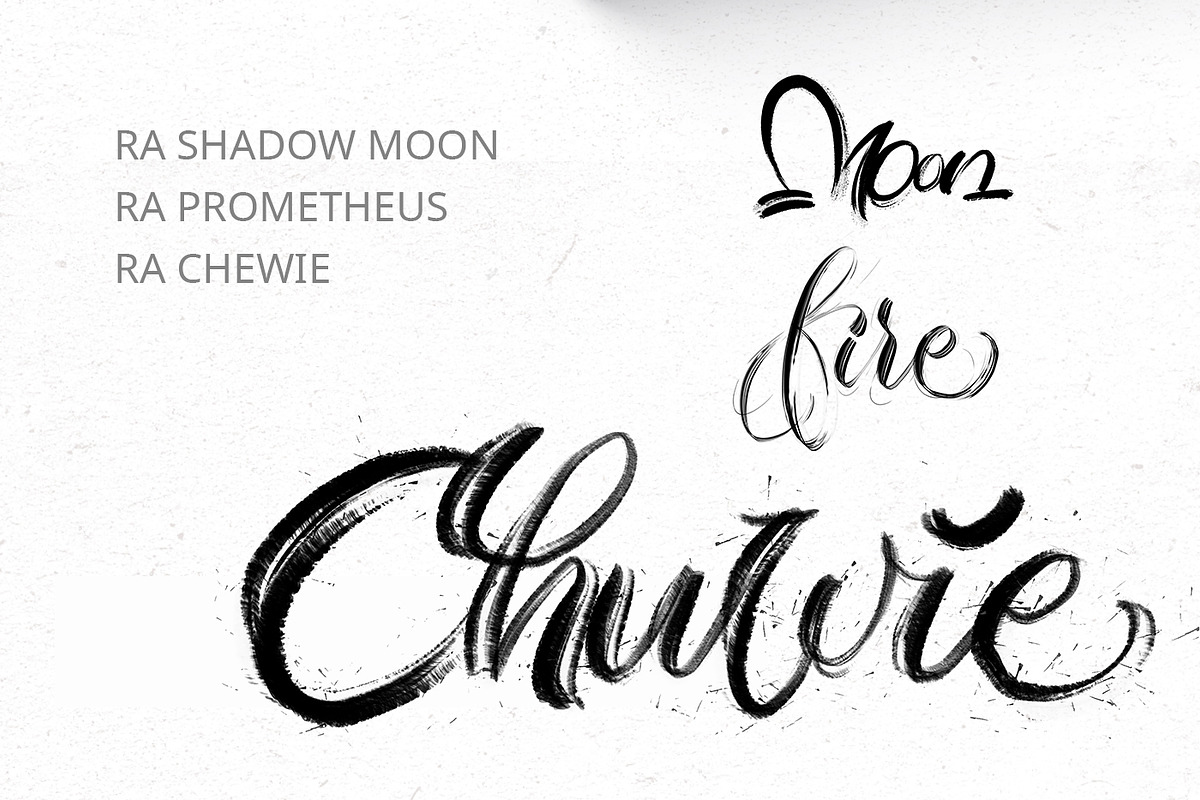 RA SHADOW MOON
RA PROMETHEUS
RA CHEWIE
Moon
fire
Chuwie